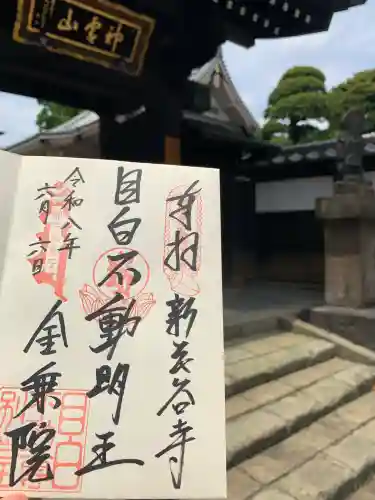 神霊山
奉拝 新長谷寺
目白不動明王
令和八年
六月六日
金乗院
目白